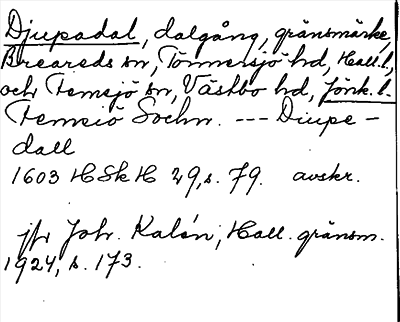 Djupadal, dalgång, gränsmärke,
Breareds sn, Tönnersjö hd, Hall. l,
och Femsjö sn, Västbo hd, Jönk. l.
Femsiö Sochn. --- Diupe-
dall
1603 HSkH 29, s. 79. avskr.
jfr Joh. Kalén, Hall. gränsm.
1924, s. 173.